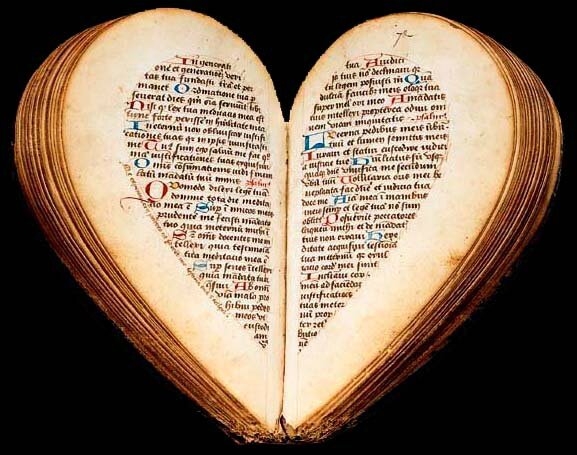 In generati
one et generatione veri
tas tua fundasti terrã et per
manet Ordinatione tua p
severat dies qm̃ oĩa serviunt tibi
Nisi qꝫ lex tua meditatio mea est
tunc forte perissem in humilitate mea
In eternũ non obliviscar iustifi
cationes tuas qr in ipsis vivificasti
me Tuus sum ego salvũ me fac qm̃
iustificationes tuas exquisivi
Omnis cõsũmationis vidi finem
latũ mandatũ tuũ nimis
Quomodo dilexi legẽ tuã
domine tota die medita
tio mea ẽ Suꝑ inimicos meos
prudentẽ me fecisti mandato
tuo quia in eternũ michi ẽ
Suꝑ omẽs docentes me in
tellexi quia testimonia
tua meditatio mea ẽ
Suꝑ senes ĩtellexi
quia mãdata tua
quesivi Ab omni
via mala pro
hibui pedes
meos ut
custodi
am
tua A iudiciis
tuis nõ declinavi qr
tu legem posuisti m̃ Quã
dulcia faucibus meis eloqa tua
super mel ori meo A mandatis
tuis intellexi propterea odivi om
nem viam iniquitatis psalmꝰ
Lucerna pedibus meis verbũ
tuũ et lumen semitis meis
Iuravi et statui custodire iudici
a iustitie tue Humiliatus sũ usq
quaq dñe vivifica me secundum
verbũ tuũ Voluntaria oris mei be
neplacita fac dñe et iudicia tua
doce me Aĩa mea ĩ manibus
meis semꝑ et legem tuã nõ sum
oblitus Posuerũt peccatores
laqueũ michi et de mãdatis
tuis non erravi Here
ditate acquisivi testimõia
tua ĩ eternũ qr exul
tatio cordis mei sunt
Inclinavi cor
meũ ad faciẽdas
iustificationes
tuas ĩ eter
nũ prop
ter ret
butio
nẽ